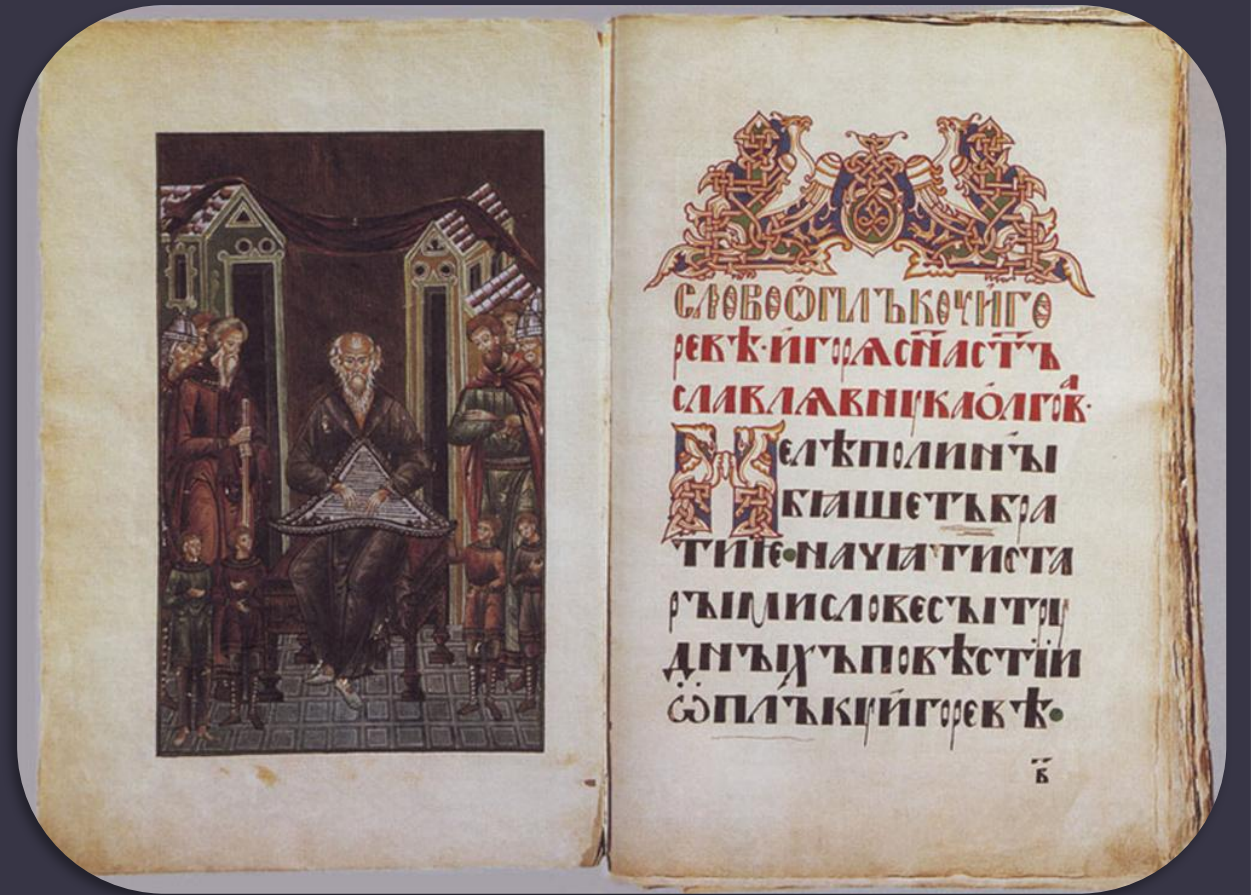 СЛОВОѠПЛЪКОУИ҆ГО
РЕВѢ·И҆ГОРѦСН҃АСТ҃Ъ
СЛАВЛѦВНꙋКАО҆ЛГОВⷶ·
НЕЛѢПОЛИНꙐ
БꙖШЕТЪБРА
ТИѤ•НАЧꙖТИСТА
РꙐМИСЛОВЕСꙐТРꙋ
ДНꙐХЪПОВѢСТЇИ
ѠПЛЪКꙋИ҆ГОРЕВѢ•
Б҃